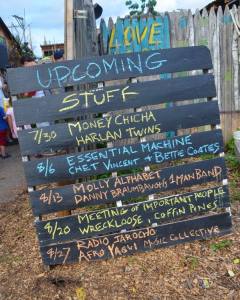 LOVE
UPCOMING
STUFF
7/30 MONEY CHICHA
HARLAN TWINS
8/6 ESSENTIAL MACHINE
CHET VINCENT & BETTIE COATES
8/13 MOLLY ALPHABET
DANNY BRAUMBAUGHS 1 MAN BAND
8/20 MEETING OF IMPORTANT PEOPLE
WRECKLOOSE, COFFIN PINES
8/27 RADIO JAROCHO
AFRO YAQUI MUSIC COLLECTIVE